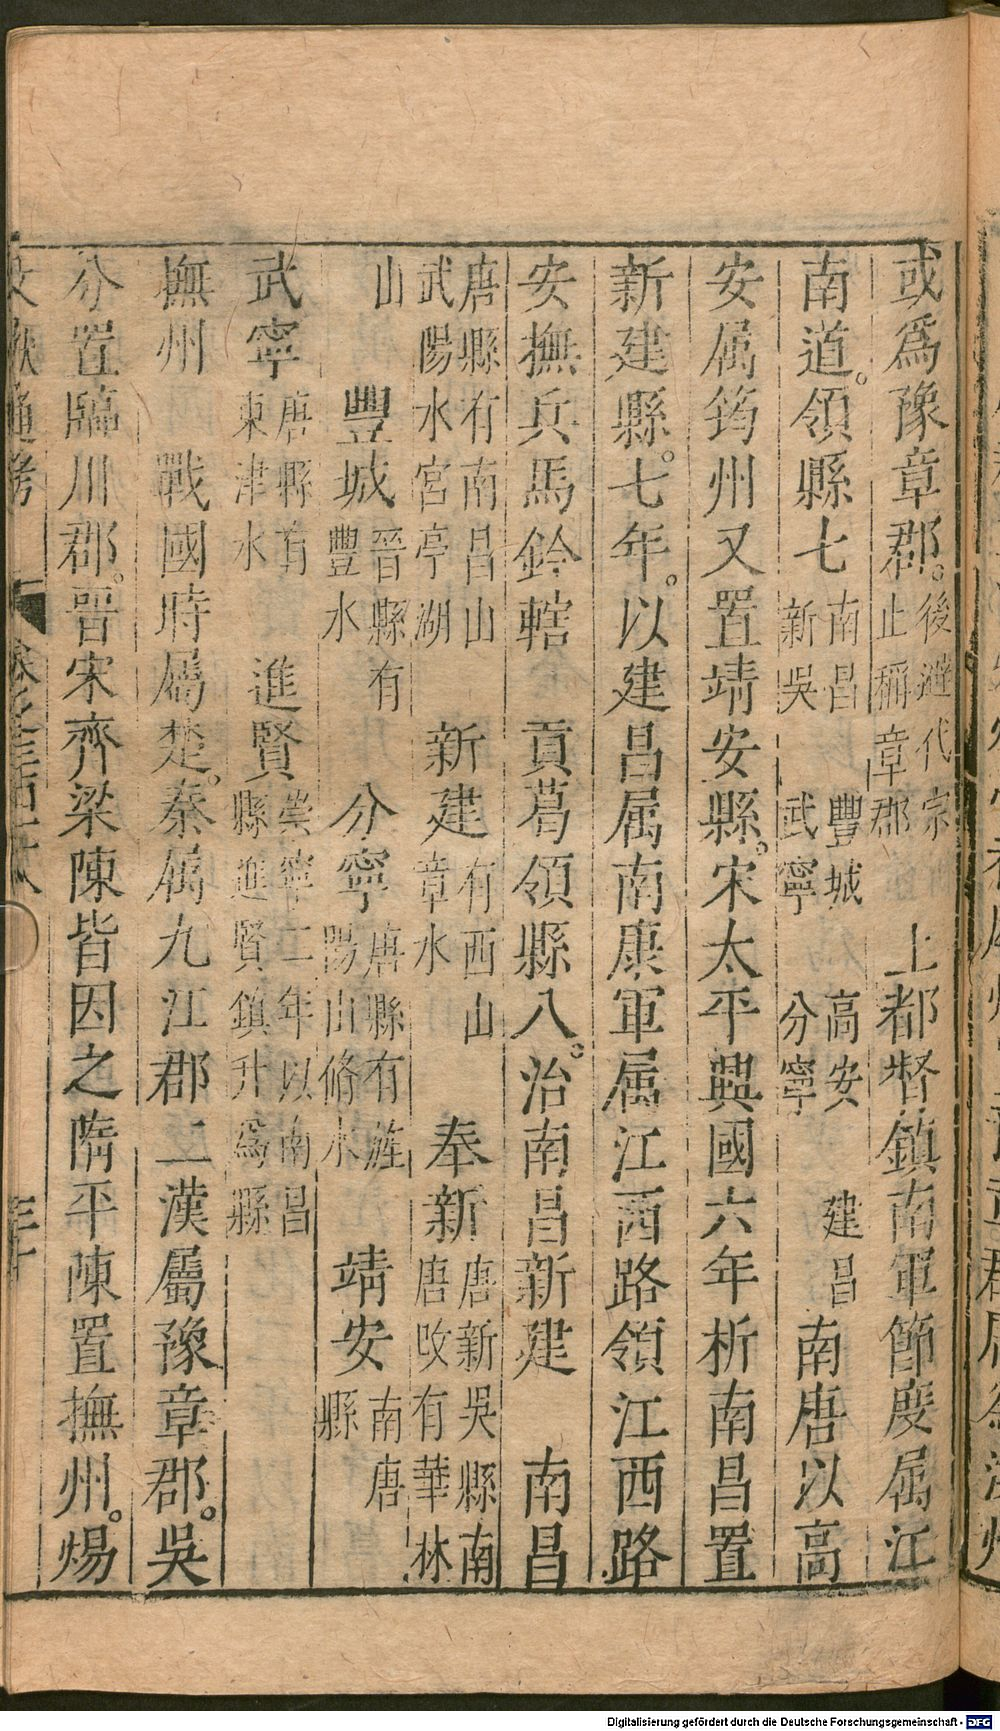 或爲豫章郡。後避代宗止稱章郡 上都督鎮南軍節度属江
南道。領縣七南昌新吳 豐城武寧 高安分寧 建昌 南唐以高
安属筠州又置靖安縣。宋太平興國六年析南昌置
新建縣。七年。以建昌属南康軍属江西路領江西路
安撫兵馬鈐轄 貢葛領縣八。治南昌新建 南昌
唐縣有南昌山武陽水宮亭湖 新建有西山章水 奉新唐新吳縣南唐改有華林
山 豐城晉縣有豐水 分寧唐縣有旌陽山脩水 靖安南唐縣
武寧唐縣有東津水 進賢崇寧二年以南昌縣進賢鎮升爲縣
撫州 戰國時屬楚。秦属九江郡二漢屬豫章郡。吳
分置臨川郡。晉宋齊梁陳皆因之隋平陳置撫州。煬
文獻通考
Digitalisierung gefördert durch die Deutsche Forschungsgemeinschaft - DFG